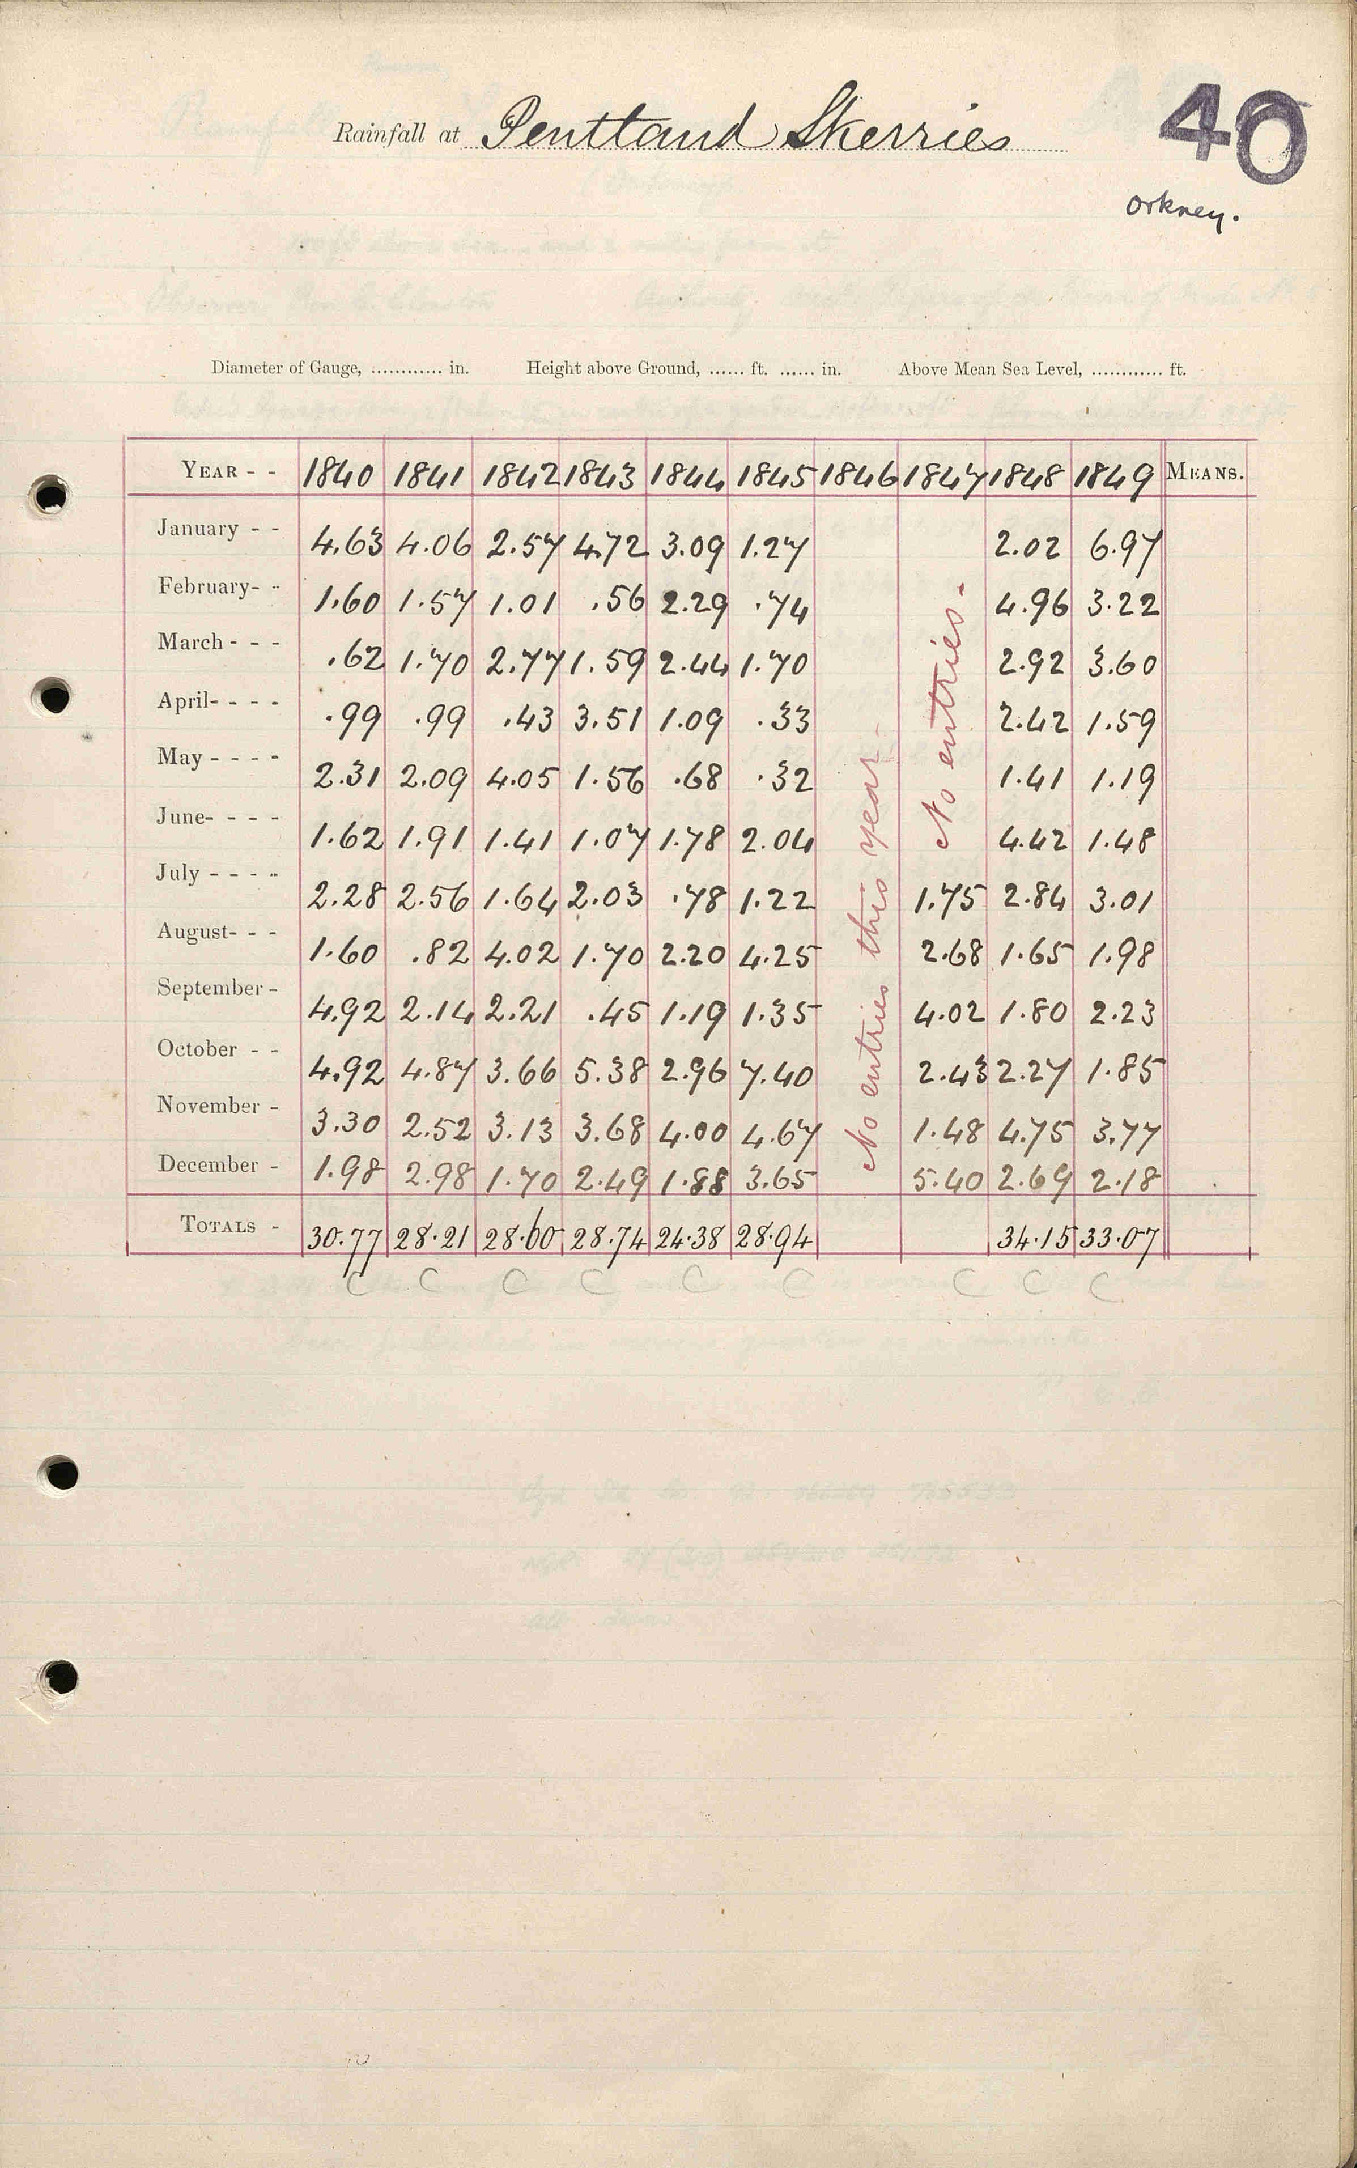 40
Rainfall at Pentland Skerries
Orkney.
Diameter of Gauge, ............ in. Height above Ground, ...... ft. ...... in. Above Mean Sea Level, ............ ft.
YEAR - - 1840 1841 1842 1843 1844 1845 1846 1847 1848 1849 MEANS.
January - - 4.63 4.06 2.57 4.72 3.09 1.27 2.02 6.97
February- - 1.60 1.57 1.01 .56 2.29 .74 4.96 3.22
March - - - .62 1.70 2.77 1.59 2.44 1.70 2.92 3.60
April- - - - .99 .99 .43 3.51 1.09 .33 2.42 1.59
May - - - - 2.31 2.09 4.05 1.56 .68 .32 1.41 1.19
June- - - - 1.62 1.91 1.41 1.07 1.78 2.04 4.42 1.48
July - - - - 2.28 2.56 1.64 2.03 .78 1.22 1.75 2.84 3.01
August- - - 1.60 .82 4.02 1.70 2.20 4.25 2.68 1.65 1.98
September - 4.92 2.14 2.21 .45 1.19 1.35 4.02 1.80 2.23
October - - 4.92 4.87 3.66 5.38 2.96 7.40 2.43 2.27 1.85
November - 3.30 2.52 3.13 3.68 4.00 4.67 1.48 4.75 3.77
December - 1.98 2.98 1.70 2.49 1.88 3.65 5.40 2.69 2.18
TOTALS - 30.77 28.21 28.60 28.74 24.38 28.94 34.15 33.07
No entries this year -
No entries -
C C C C C C C C C